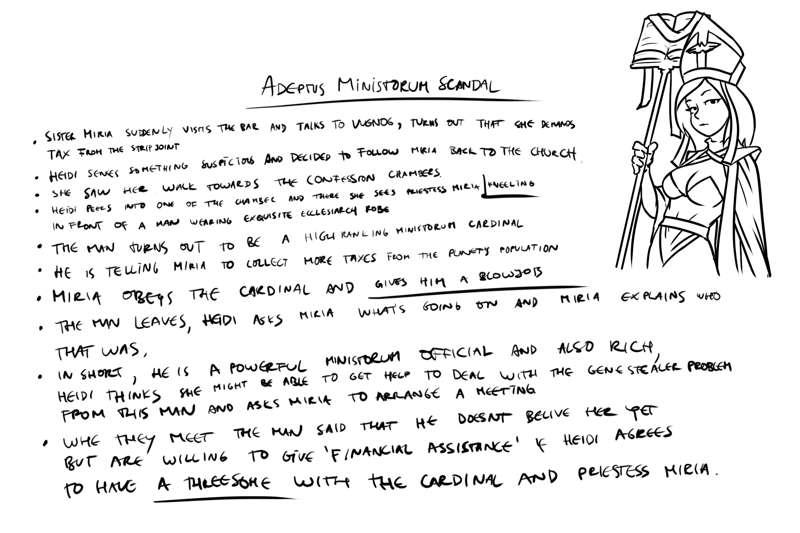 ADEPTUS MINISTORUM SCANDAL
• SISTER MIRIA SUDDENLY VISITS THE BAR AND TALKS TO VUENOS, TURNS OUT THAT SHE DEMANDS
TAX FROM THE STRIPJOINT
• HEIDI SENSES SOMETHING SUSPICIOUS AND DECIDED TO FOLLOW MIRIA BACK TO THE CHURCH.
• SHE SAW HER WALK TOWARDS THE CONFESSION CHAMBERS.
• HEIDI PEEKS INTO ONE OF THE CHAMBER AND THERE SHE SEES PRIESTESS MIRIA KNEELING
IN FRONT OF A MAN WEARING EXQUISITE ECCLESIARCH ROBE
• THE MAN TURNS OUT TO BE A HIGH RANKING MINISTORUM CARDINAL
• HE IS TELLING MIRIA TO COLLECT MORE TAXES FROM THE PLANET'S POPULATION
• MIRIA OBEYS THE CARDINAL AND GIVES HIM A BLOWJOB
• THE MAN LEAVES, HEIDI ASKS MIRIA WHAT'S GOING ON AND MIRIA EXPLAINS WHO
THAT WAS.
• IN SHORT, HE IS A POWERFUL MINISTORUM OFFICIAL AND ALSO RICH,
HEIDI THINKS SHE MIGHT BE ABLE TO GET HELP TO DEAL WITH THE GENESTEALER PROBLEM
FROM THIS MAN AND ASKS MIRIA TO ARRANGE A MEETING
• WHE THEY MEET THE MAN SAID THAT HE DOESN'T BELIVE HER YET
BUT ARE WILLING TO GIVE 'FINANCIAL ASSISTANCE' IF HEIDI AGREES
TO HAVE A THREESOME WITH THE CARDINAL AND PRIESTESS MIRIA.